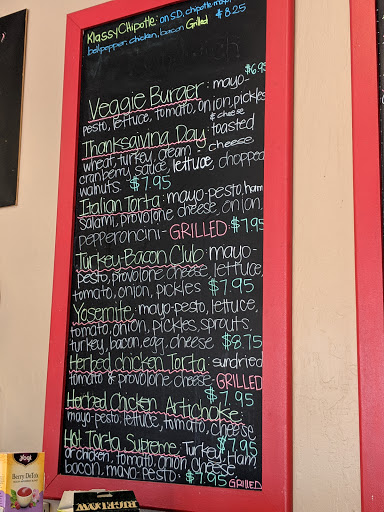 KlassyChipotle: on S.D, chipotle mayo,
bellpepper, chicken, bacon Grilled $8.25
Veggie Burger: mayo- $6.95
pesto, lettuce, tomato, onion, pickles
& cheese
Thanksgiving Day: toasted
wheat, turkey, cream-cheese,
cranberry sauce, lettuce, chopped
walnuts. $7.95
Italian Torta: mayo-pesto, ham
salami, provolone cheese, onion,
pepperoncini- GRILLED $7.95
Turkey-Bacon Club: mayo-
pesto, provolone cheese, lettuce,
tomato, onion, pickles $7.95
Yosemite: mayo-pesto, lettuce,
tomato, onion, pickles, sprouts,
turkey, bacon, egg, cheese $8.75
Herbed chicken Torta: sundried
tomato & provolone cheese GRILLED
$7.95
Herbed Chicken Artichoke:
mayo-pesto, lettuce, tomato, cheese
$7.95
Hot Torta Supreme: Turkey, Ham
or chicken, tomato, onion cheese
bacon, mayo-pesto: $7.95 GRILLED
yogi
Berry DeTox